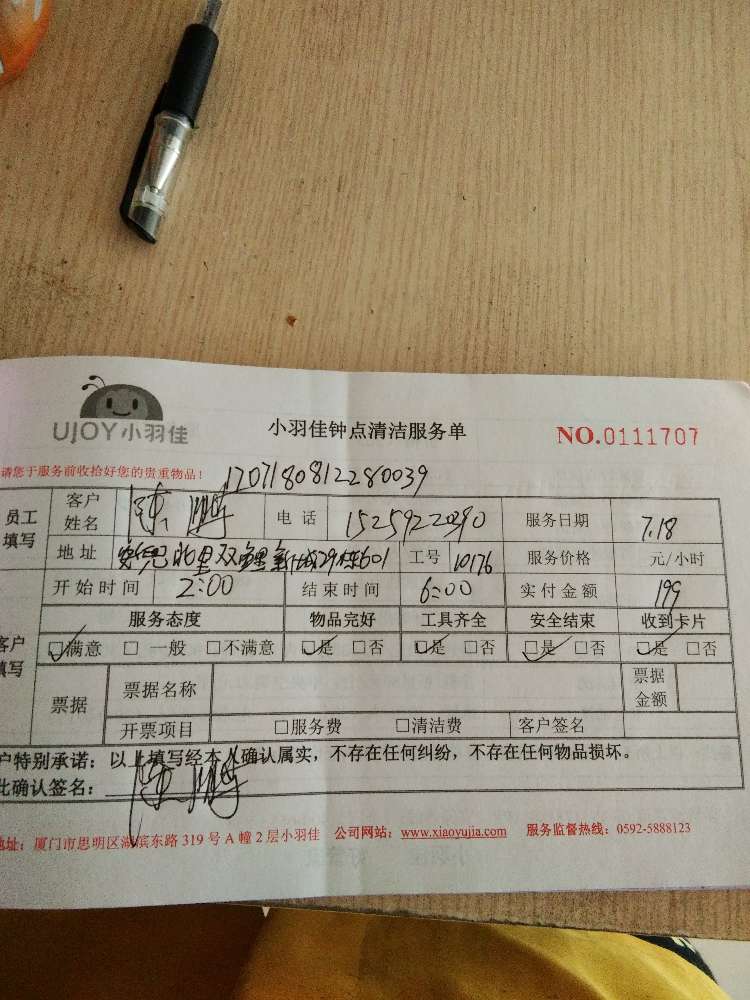 UJOY小羽佳
小羽佳钟点清洁服务单
NO.0111707
请您于服务前收拾好您的贵重物品!
1707180812280039
员工填写 客户姓名 陈 电话 15259220390 服务日期 7.18
地址 北里双鲤新城29栋601 工号 10176 服务价格 元/小时
开始时间 2:00 结束时间 6:00 实付金额 199
客户填写 服务态度 物品完好 工具齐全 安全结束 收到卡片
☑满意 □ 一般 □不满意 ☑是 □否 ☑是 □否 ☑是 □否 ☑是 □否
票据 票据名称 票据金额
开票项目 □服务费 □清洁费 客户签名
户特别承诺:以上填写经本人确认属实,不存在任何纠纷,不存在任何物品损坏。
此确认签名:陈
地址:厦门市思明区湖滨东路 319 号 A 幢 2 层小羽佳 公司网站:www.xiaoyujia.com 服务监督热线:0592-5888123